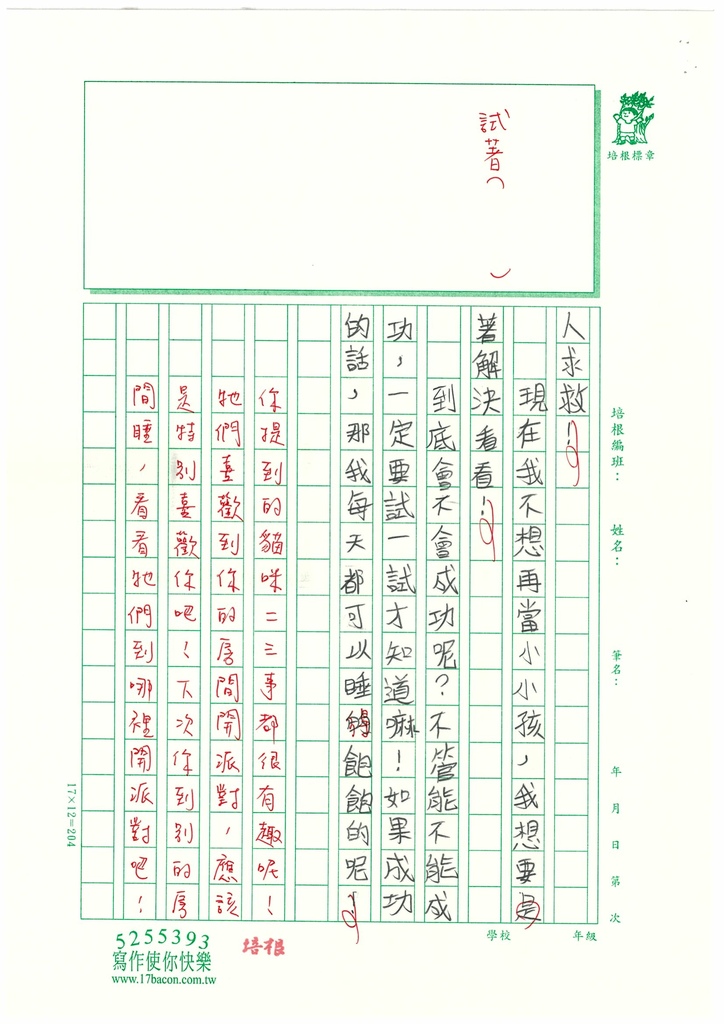 培根標章
試著（　　）
培根編班：　姓名：　筆名：　年　月　日　第　次
學校　年級
人求救！
現在我不想再當小小孩，我想要
著解決看看！
到底會不會成功呢？不管能不能成
功，一定要試一試才知道嘛！如果成功
的話，那我每天都可以睡飽飽的呢！
你提到的貓咪二三事都很有趣呢！
牠們喜歡到你的房間開派對，應該
是特別喜歡你吧！下次你到別的房
間睡，看看牠們到哪裡開派對吧！
17×12=204
5255393
寫作使你快樂
www.17bacon.com.tw
培根